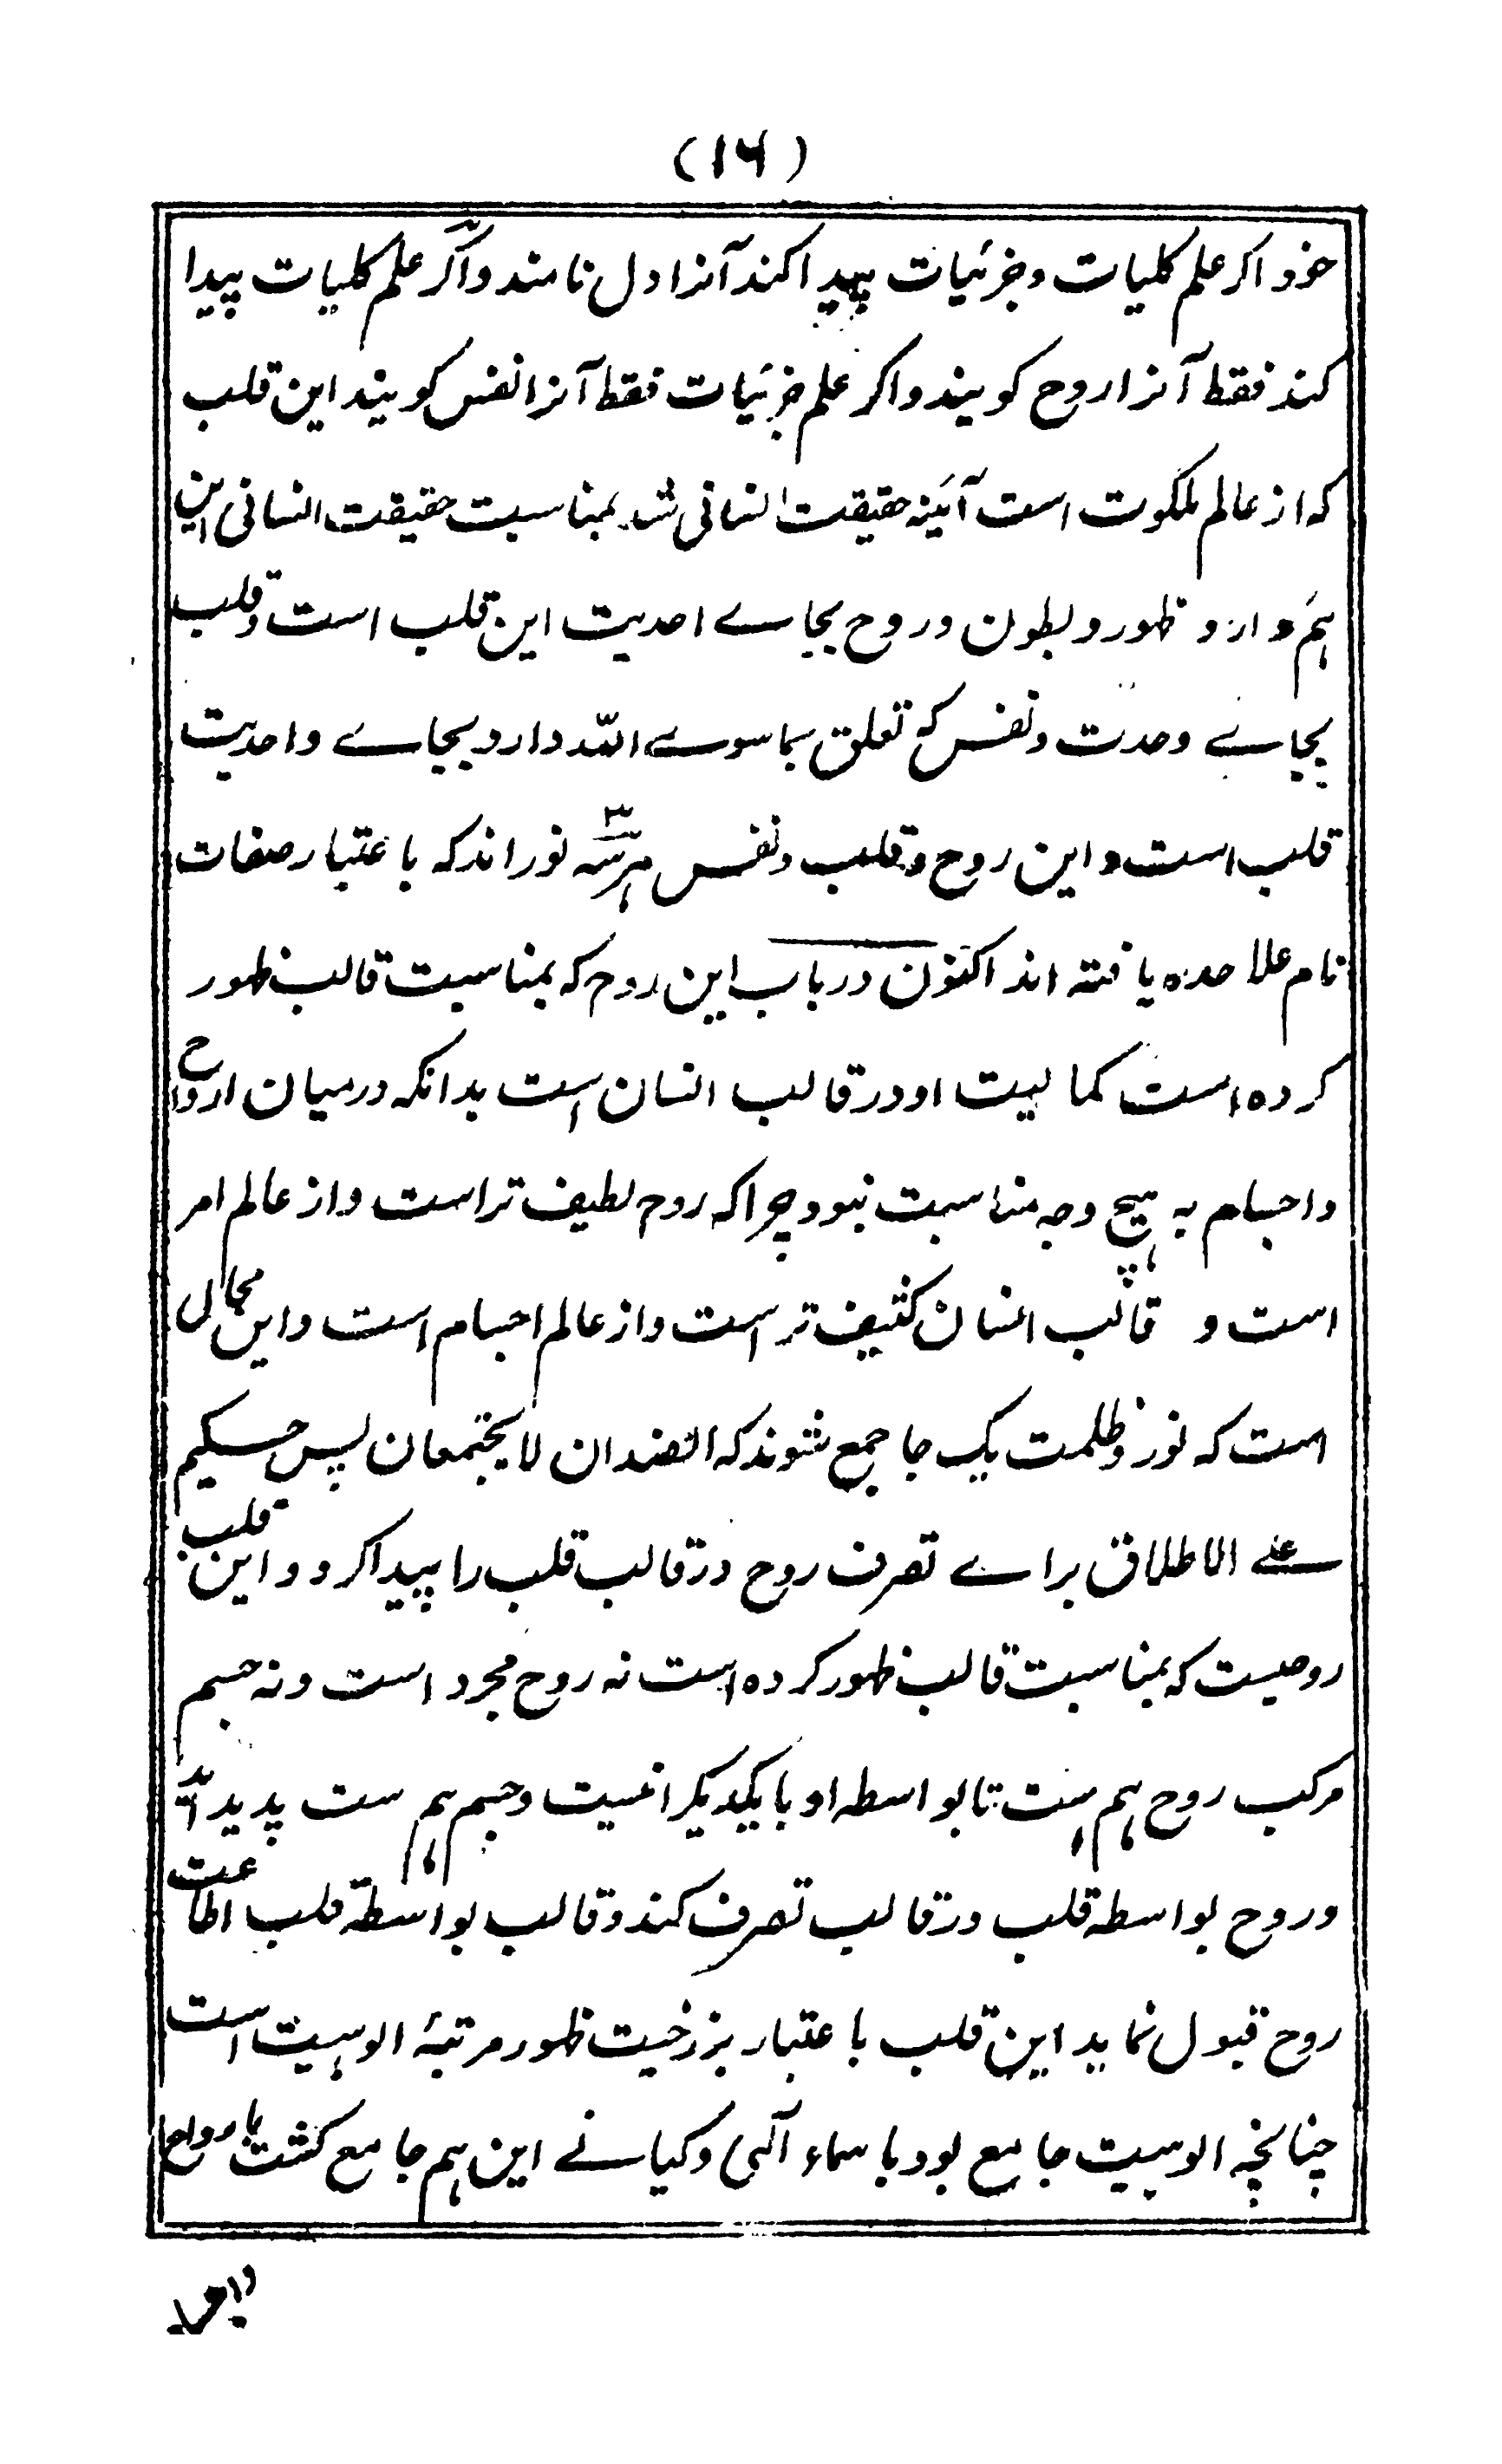 (۱۶)
خود اگر علم کلیات و جزئیات پیدا کند آنرا دل نامند و اگر علم کلیات پیدا
کند فقط آنرا روح گویند و اگر علم جزئیات فقط آنرا نفس گویند این قلب
که از عالم ملکوت است آئینه حقیقت انسانی شد بمناسبت حقیقت انسانی این
هم دارد ظهور و بطون و روح بجاے احدیت این قلب است و قلب
بجاے وحدت و نفس که تعلق بماسوے الله دارد بجاے واحدیت
قلب است و این روح و قلب و نفس هر سه نور اند که باعتبار صفات
نام علاحده یافته اند اکنون در باب این روح که بمناسبت قالب ظهور
کرده است کمالیت او در قالب انسان است بدانکه درمیان ارواح
و اجسام به هیچ وجه مناسبت نبود چراکه روح لطیف تر است و از عالم امر
است و قالب انسان کثیف تر است و از عالم اجسام است و این محال
است که نور و ظلمت یک جا جمع شوند که الضدان لا یجتمعان پس حکیم
علے الاطلاق براے تصرف روح در قالب قلب را پیدا کرد و این قلب
روحیست که بمناسبت قالب ظهور کرده است نه روح مجرد است و نه جسم
مرکب روح هم هست تا بواسطه او با یکدیگر اغیت و جسم هم ست پدید آید
و روح بواسطه قلب در قالب تصرف کند و قالب بواسطه قلب اطاعت
روح قبول نماید این قلب باعتبار برزخیت ظهور مرتبۂ الوهیت است
چنانچه الوهیت جامع بود باسماء آلهی و کیانے این هم جامع گشت بارواح